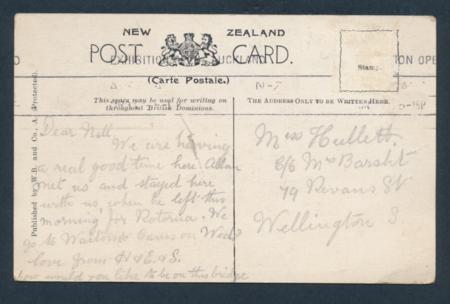 NEW ZEALAND
POST CARD.
(Carte Postale.)
EXHIBITION AUCKLAND
Stamp
This space may be used for writing on
throughout British Dominions.
THE ADDRESS ONLY TO BE WRITTEN HERE.
Published by W.B. and Co., A. (Protected).
Dear Nell
We are having
a real good time here. Allan
met us and stayed here
with us, when he left this
morning for Rotorua. We
go to Caves on Wed
love from
how would you like to be on this bridge
Miss Hullett
C/o Mrs
79 Revans St
Wellington S.